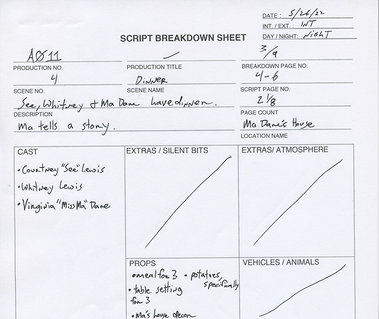 DATE: 5/26/22
INT. / EXT.: INT
DAY / NIGHT: NIGHT
SCRIPT BREAKDOWN SHEET
AØ11
3/9
PRODUCTION NO.
PRODUCTION TITLE
BREAKDOWN PAGE NO.
4
DINNER
4-6
SCENE NO.
SCENE NAME
SCRIPT PAGE NO.
See, Whitney & Ma Dame have dinner.
2 1/8
DESCRIPTION
PAGE COUNT
Ma tells a story.
Ma Dame's House
LOCATION NAME
CAST
EXTRAS / SILENT BITS
EXTRAS/ ATMOSPHERE
• Courtney "See" Lewis
• Whitney Lewis
• Virginia "Miss Ma" Dame
PROPS
VEHICLES / ANIMALS
• meal for 3 • potatoes, specifically
• table setting
for 3
• Ma's house decor